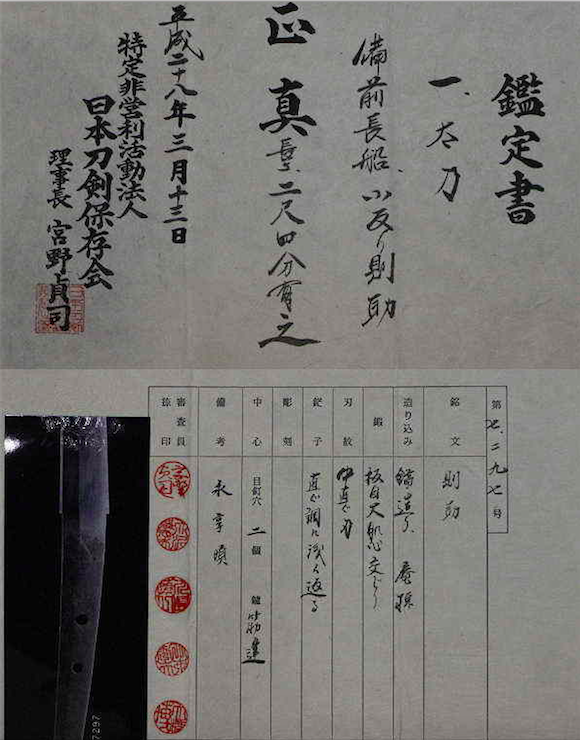 鑑定書
一、太刀
備前長船、小反り則助
正真 長サ、二尺四分有之
平成二十八年三月十三日
特定非営利活動法人
日本刀剣保存会
理事長 宮野貞司
第七、二九七号
銘文 則助
造り込み 鎬造り、庵棟
鍛 板目 交じり
刃紋 中直ぐ刃
鋩子 直ぐ調に浅く返る
彫刻
中心 目釘穴 二個 鑢 筋違
備考 永享頃
審査員
捺印
7297